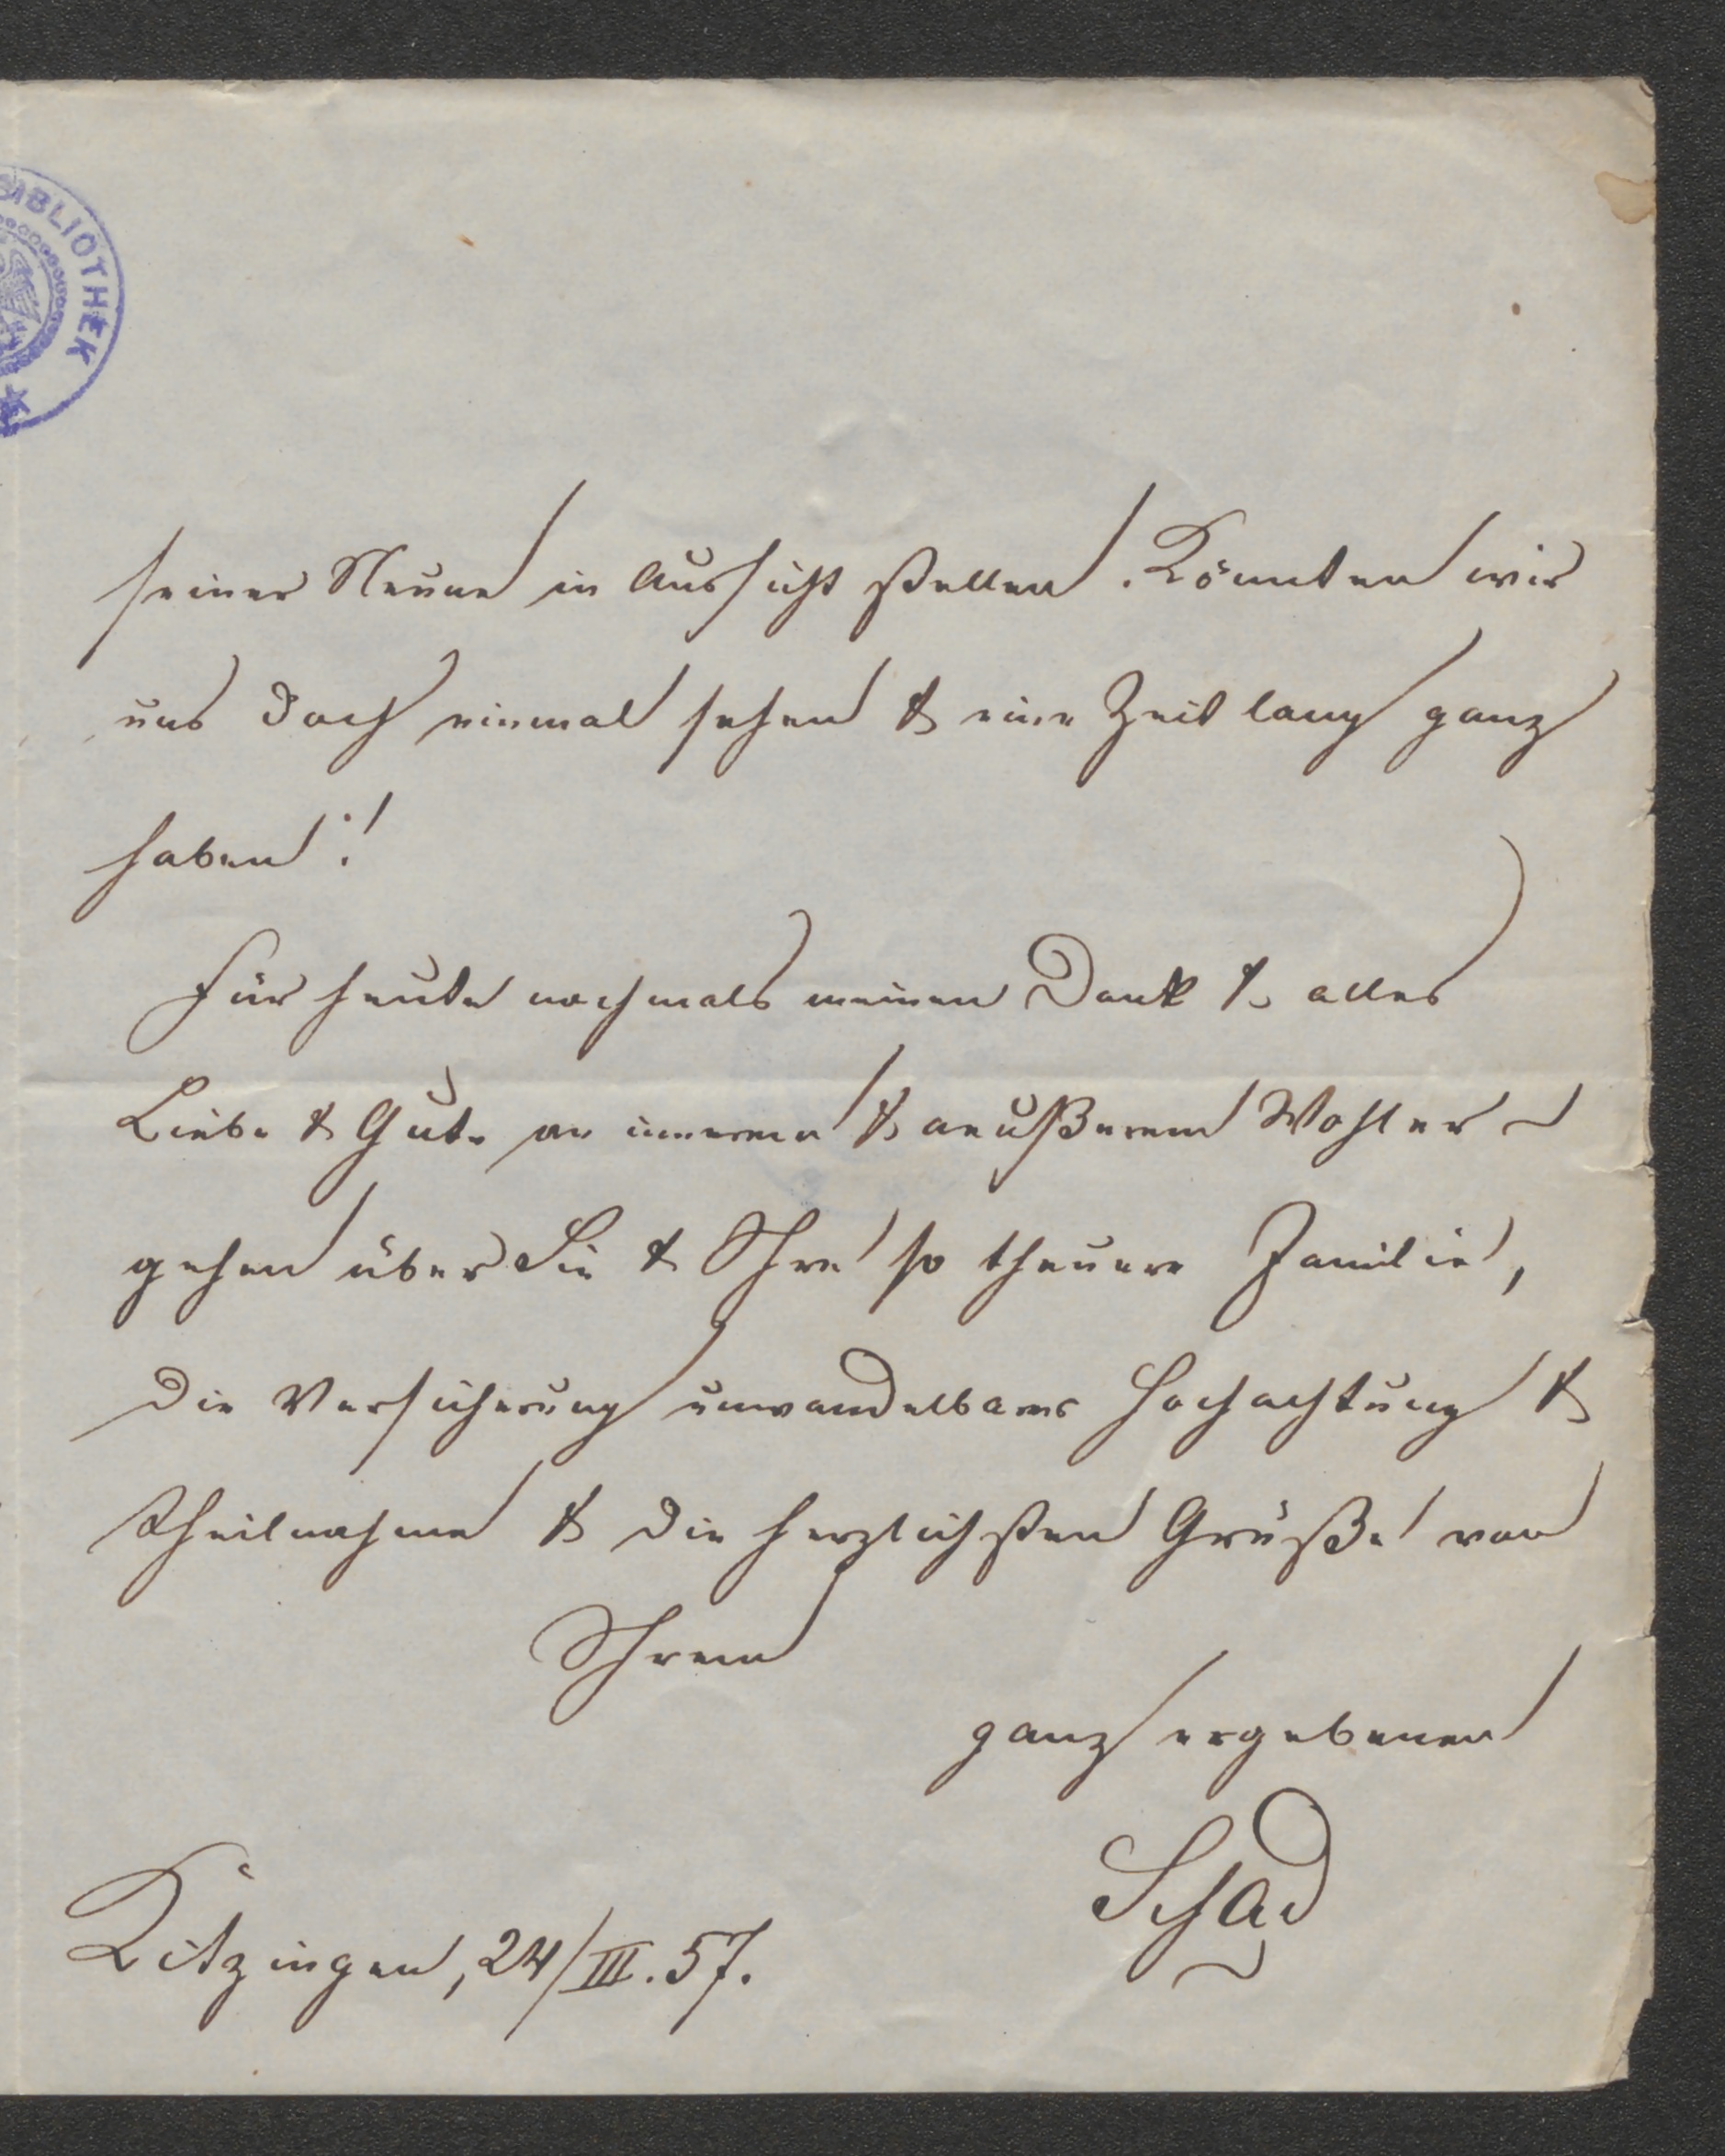 BIBLIOTHEK
seiner Neune in Aussicht stellen. Könnten wir
uns doch einmal sehen & eine Zeit lang ganz
haben!
Für heute nochmals meinen Dank & alles
Liebe & Gute an innerem & aeußerem Wohler-
gehen über Sie & Ihre so theuere Familie,
die Versicherung unwandelbarer Hochachtung &
Theilnahme & die herzlichsten Grüße von
Ihrem
ganz ergebenen
Schad
Kitzingen, 24/III. 57.